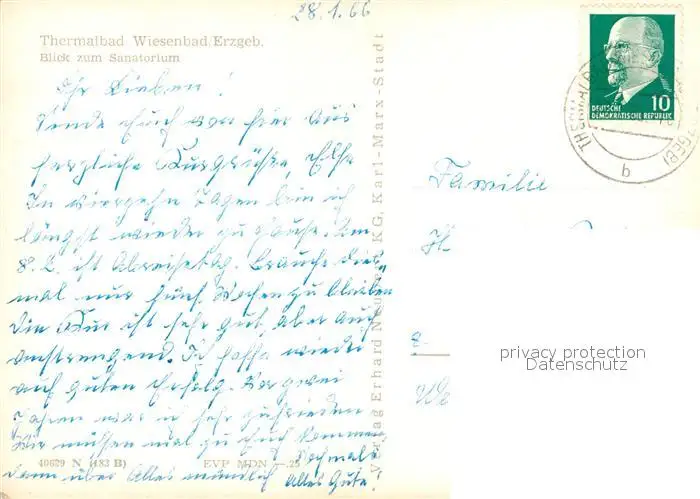 28.1.66
Thermalbad Wiesenbad/Erzgeb.
Blick zum Sanatorium
Ihr Lieben!
Sende Euch von hier aus
herzliche Kurgrüße, Elße
In vierzehn Tagen bin ich
längst wieder zu Hause. Am
8.2. ist Abreisetag. Brauche dies-
mal nur fünf Wochen zu bleiben
Die Kur ist sehr gut, aber auch
anstrengend. Ich hoffe wieder
auf guten Erfolg. Vor zwei
Jahren war ich sehr zufrieden
Wir müssen mal zu Euch kommen
dann über Alles mündlich
Nochmals
Alles Gute!
40629 N (183 B) EVP MDN -.25
Verlag Erhard Neubert KG, Karl-Marx-Stadt
DEUTSCHE
DEMOKRATISCHE REPUBLIK
10
b
Familie
privacy protection
Datenschutz